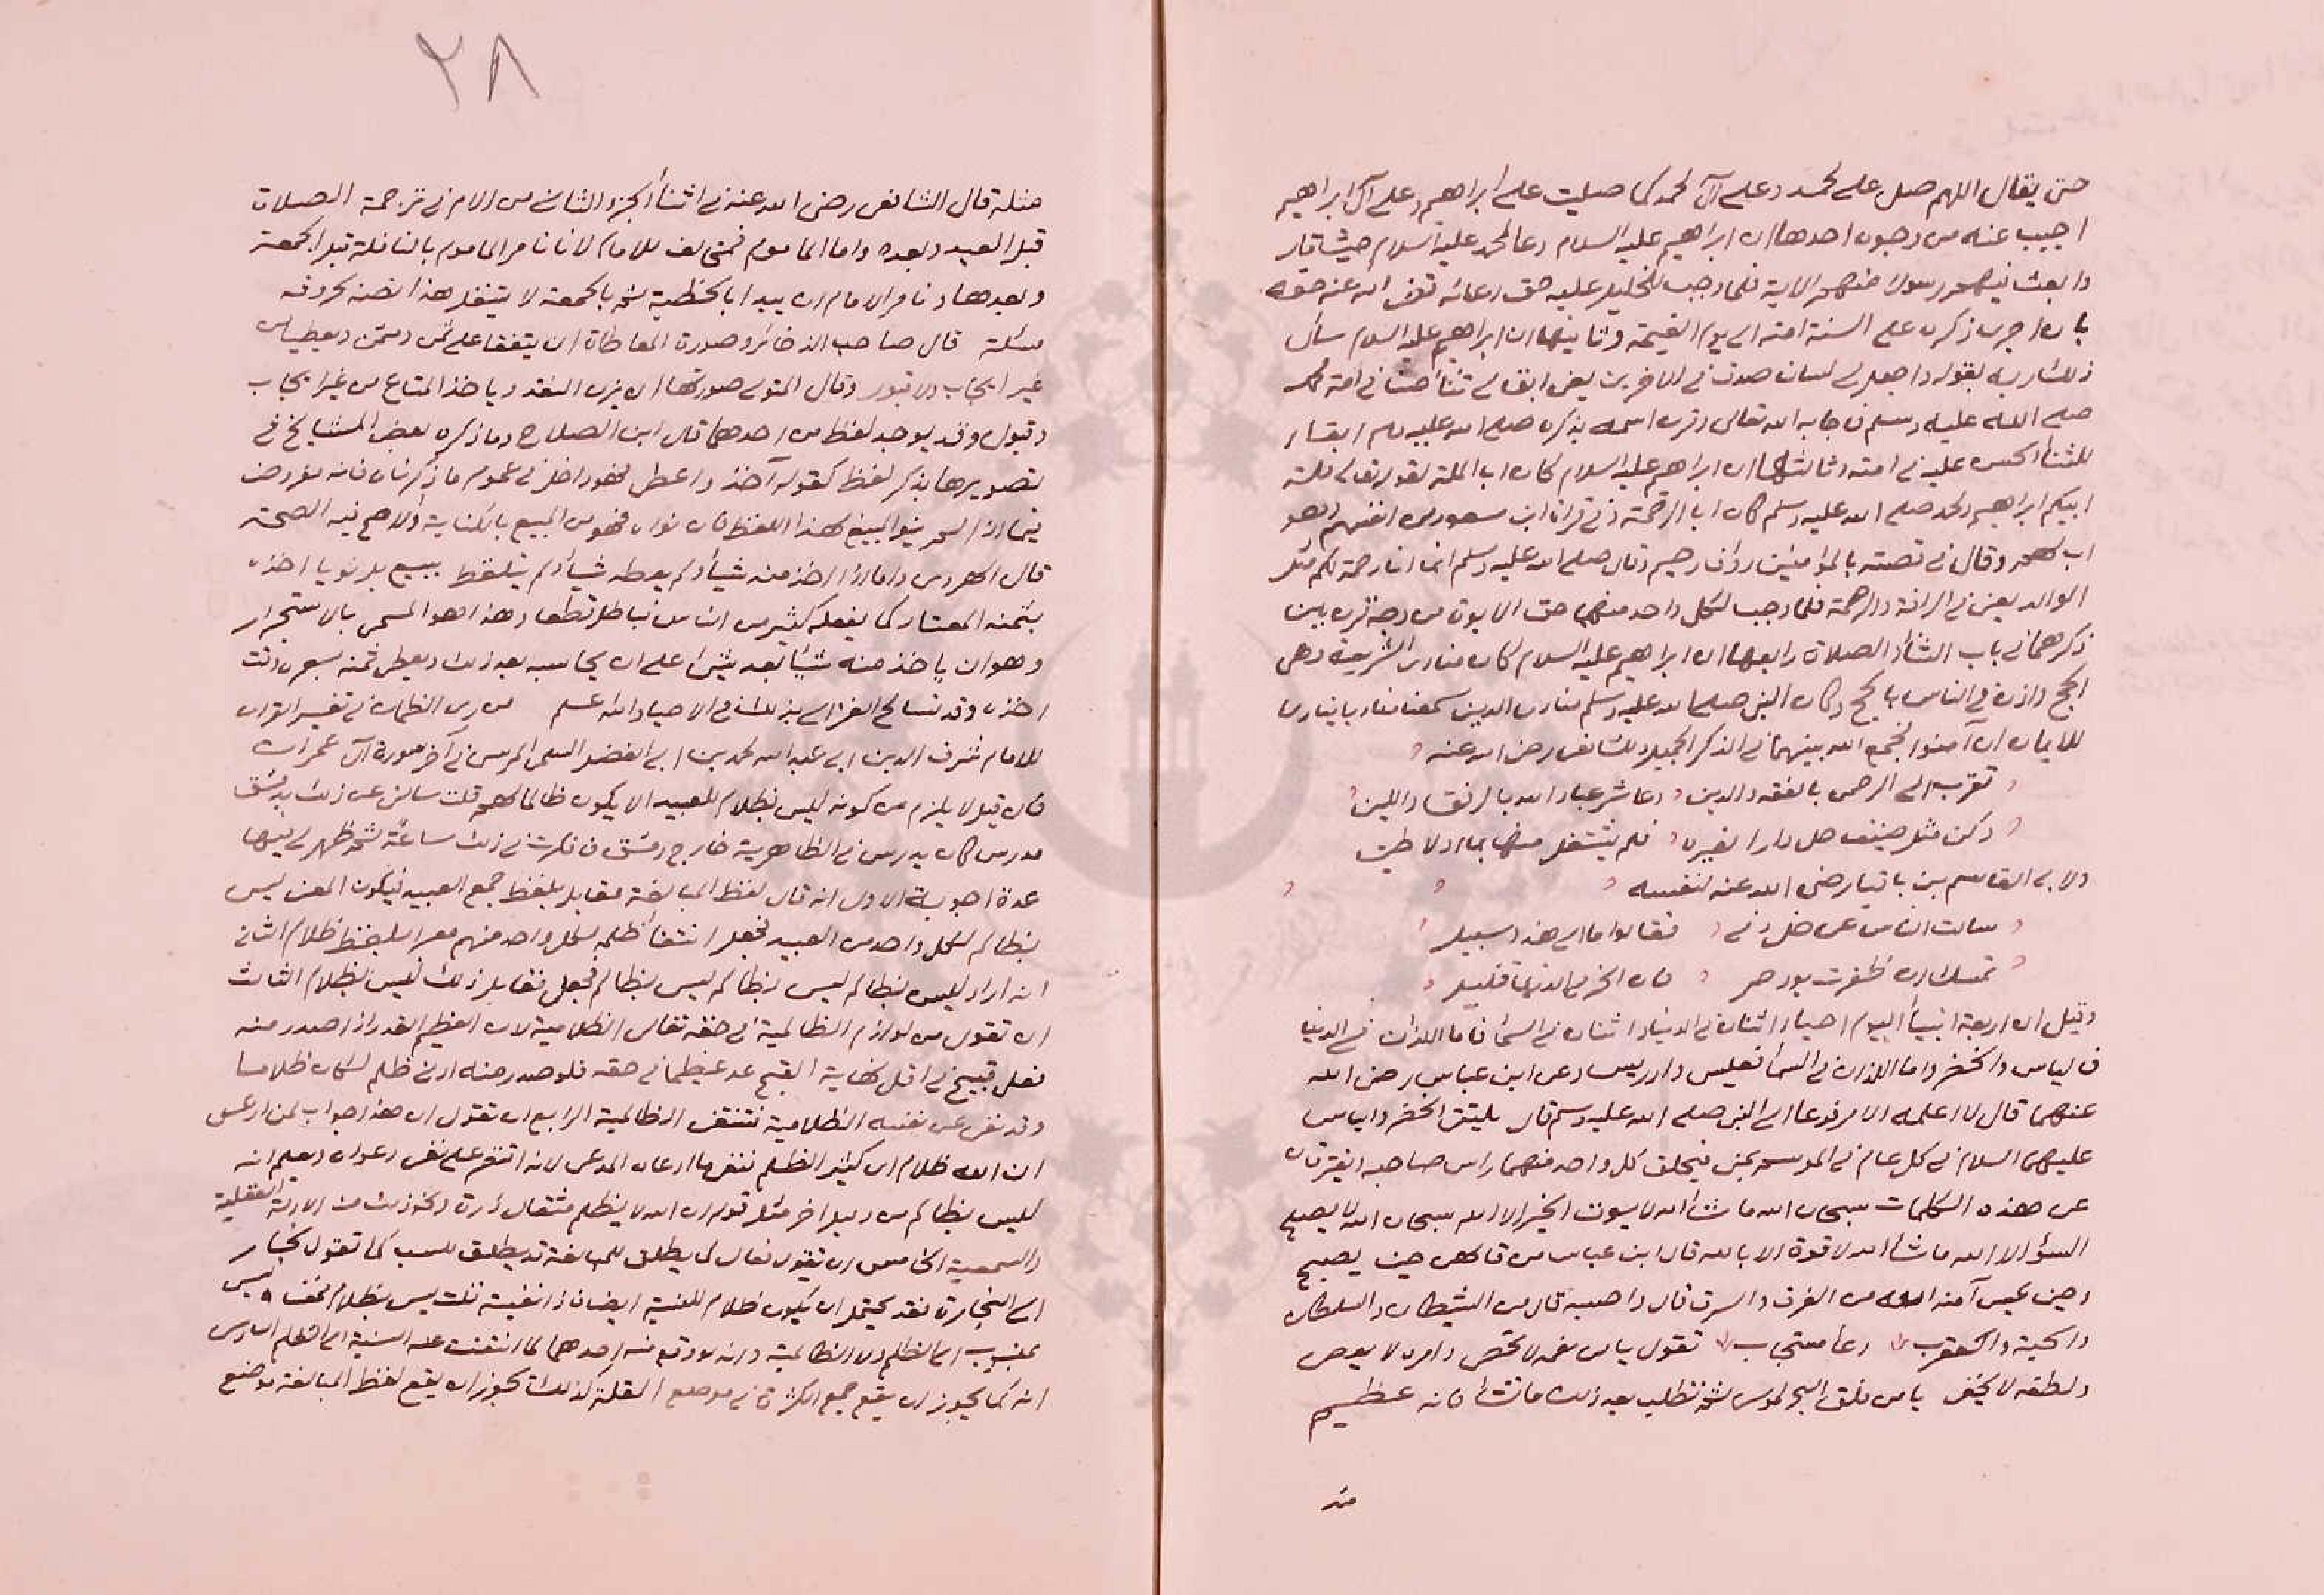 حتى يقال اللهم صل على محمد وعلى آل محمد كما صليت على ابراهيم وعلى آل ابراهيم
اجيب عنه من وجوه احدها ان ابراهيم عليه السلام دعا لمحمد عليه السلام حيث قال
وابعث فيهم رسولا منهم الاية فلما وجب للخليل عليه حق دعائه قضى الله عنه حقه
بان اجرى ذكره على السنة امته الى يوم القيمة وثانيها ان ابراهيم عليه السلام سأل
ذلك ربه بقوله واجعل لي لسان صدق في الاخرين يعني ابق لي ثناء حسنا في امة محمد
صلى الله عليه وسلم فاجابه الله تعالى وقرن اسمه بذكره صلى الله عليه وسلم ابقاء
للثناء الحسن عليه في امته وثالثها ان ابراهيم عليه السلام كان اب الملة لقوله تعالى ملة
ابيكم ابراهيم ومحمد صلى الله عليه وسلم كان ابا الرحمة وفي قراة ابن مسعود من انفسهم وهو
اب لهم وقال في قصته بالمؤمنين رؤف رحيم وقال صلى الله عليه وسلم انما انا رحمة لكم مثل
الوالد يعني في الرافة والرحمة فلما وجب لكل واحد منهما حق الابوة من وجه قرن بين
ذكرهما في باب الثناء والصلاة رابعها ان ابراهيم عليه السلام كان منادي الشريعة وهي
الحج واذن في الناس بالحج وكان النبي صلى الله عليه وسلم منادي الدين سمعنا مناديا ينادي
للايمان ان آمنوا فجمع الله بينهما في الذكر الجميل وللشافعي رضي الله عنه
تقرب الى الرحمن بالفقه والدين وعاشر عباد الله بالرفق واللين
وكن مثل ضيف حل دارا لغيره فلم يشتغل منها بماء ولا طين
ولابي القاسم بن باتيار رضي الله عنه لنفسه
سالت الناس عن خل وفي فقالوا ما الى هذا سبيل
تمسك ان ظفرت بود حر فان الحر في الدنيا قليل
وقيل ان اربعة انبياء اليوم احياء اثنان في الدنيا واثنان في السماء فاما اللذان في الدنيا
فالياس والخضر واما اللذان في السماء فعيسى وادريس وعن ابن عباس رضي الله
عنهما قال لا اعلمه الا مرفوعا الى النبي صلى الله عليه وسلم قال يلتقي الخضر والياس
عليهما السلام في كل عام في الموسم بمنى فيحلق كل واحد منهما راس صاحبه ويفترقان
عن هذه الكلمات سبحان الله ما شاء الله لا يسوق الخير الا الله سبحان الله لا يصلح
السؤ الا الله ما شاء الله لا قوة الا بالله قال ابن عباس من قالهن حين يصبح
وحين يمسي آمنه الله من الغرق والسرق قال واحسبه قال من الشيطان والسلطان
والحية والعقرب دعاء مستجاب تقول يا من نعمه لا تحصى وامره لا يعصى
ولطفه لا يخفى يا من فلق البحر لموسى ثم تطلب بعد ذلك ما تشاء فانه عظيم
مثله
٢٨
مثله قال الشافعي رضي الله عنه في اثناء الجزء الثاني من الام في ترجمة الصلاة
قبل العيد وبعده واما الماموم فمخالف للامام لانا نامر الماموم بالنافلة قبل الجمعة
وبعدها ونامر الامام ان يبدا بالخطبة ثم بالجمعة لا يتنفل هذا نصه بحروفه
مسئلة قال صاحب الذخائر وصورة المعاطاة ان يتفقا على ثمن ومثمن ويعطيا من
غير ايجاب ولا قبول وقال المتولي صورتها ان يزن النقد وياخذ المتاع من غير ايجاب
وقبول وقد يوجد لفظ من احدهما قال ابن الصلاح وما ذكره بعض المشايخ في
تصويرها بذكر لفظ كقوله آخذ واعطي فهو داخل في عموم ما ذكرناه فانه مفروض
فيما اذا لم ينو البيع بهذا اللفظ فان نواه فهو من البيع بالكناية والاصح فيه الصحة
قال المهروى واما اذا اخذ منه شيأ ولم يعطه شيأ ولم يتلفظ ببيع بل نويا اخذه
بثمنه المعتاد كما يفعله كثير من الناس فباطل قطعا وهذا هو المسمى بالاستجرار
وهو ان ياخذ منه شيئا بعد شيء على ان يحاسبه بعد ذلك ويعطي ثمنه بسعر وقت
اخذه وقد تسامح الغزالي بذلك في الاحياء والله اعلم من ري الظمان في تفسير القران
للامام شرف الدين ابي عبد الله محمد بن ابي الفضل السلمي المرسي في آخر سورة آل عمران
فان قيل لا يلزم من كونه ليس بظلام للعبيد الا يكون ظالما لهم قلت سالني عن ذلك بدمشق
مدرس كان يدرس في الظاهرية خارج دمشق ففكرت في ذلك ساعة ثم ظهر لي فيها
عدة اجوبة الاول انه قال لفظ المبالغة مقابل بلفظ جمع العبيد فيكون المعنى ليس
بظالم لكل واحد من العبيد فجعل انتفاء ظلمه لكل واحد منهم معبرا بلفظ ظلام الثاني
انه اراد ليس بظالم ليس بظالم ليس بظالم فجعل مقابل ذلك ليس بظلام الثالث
ان تقول من لوازم الظالمية في حقه تعالى الظلامية لان العظيم القدر اذا صدر منه
فعل قبيح في اقل نهاية القبح عد عظيما في حقه فلو صدر منه ادنى ظلم لكان ظلاما
وقد نفى عن نفسه الظلامية فتنتفي الظالمية الرابع ان تقول ان هذا جواب لمن ادعى
ان الله ظلام اى كثير الظلم فنفى ما ادعاه المدعى لانه اقتصر على نفي دعواه ويعلم انه
ليس بظالم من دليل اخر مثل قوله ان الله لا يظلم مثقال ذرة ونحو ذلك من الادلة العقلية
والسمعية الخامس ان تقول فعال كما يطلق للمبالغة قد يطلق للنسب كما تقول نجار
اى النجارة فقد يحتمل ان يكون ظلام للنسبة ايضا فاذا نفيته قلت ليس بظلام فمعناه ليس
بمنسوب الى الظلم ولا الظالمية وانه لو وقع منه احدهما لما انتفت عنه النسبة الى الظلم السادس
انه كما يجوز ان يقع جمع الكثرة في موضع القلة كذلك يجوز ان يقع لفظ المبالغة موضع